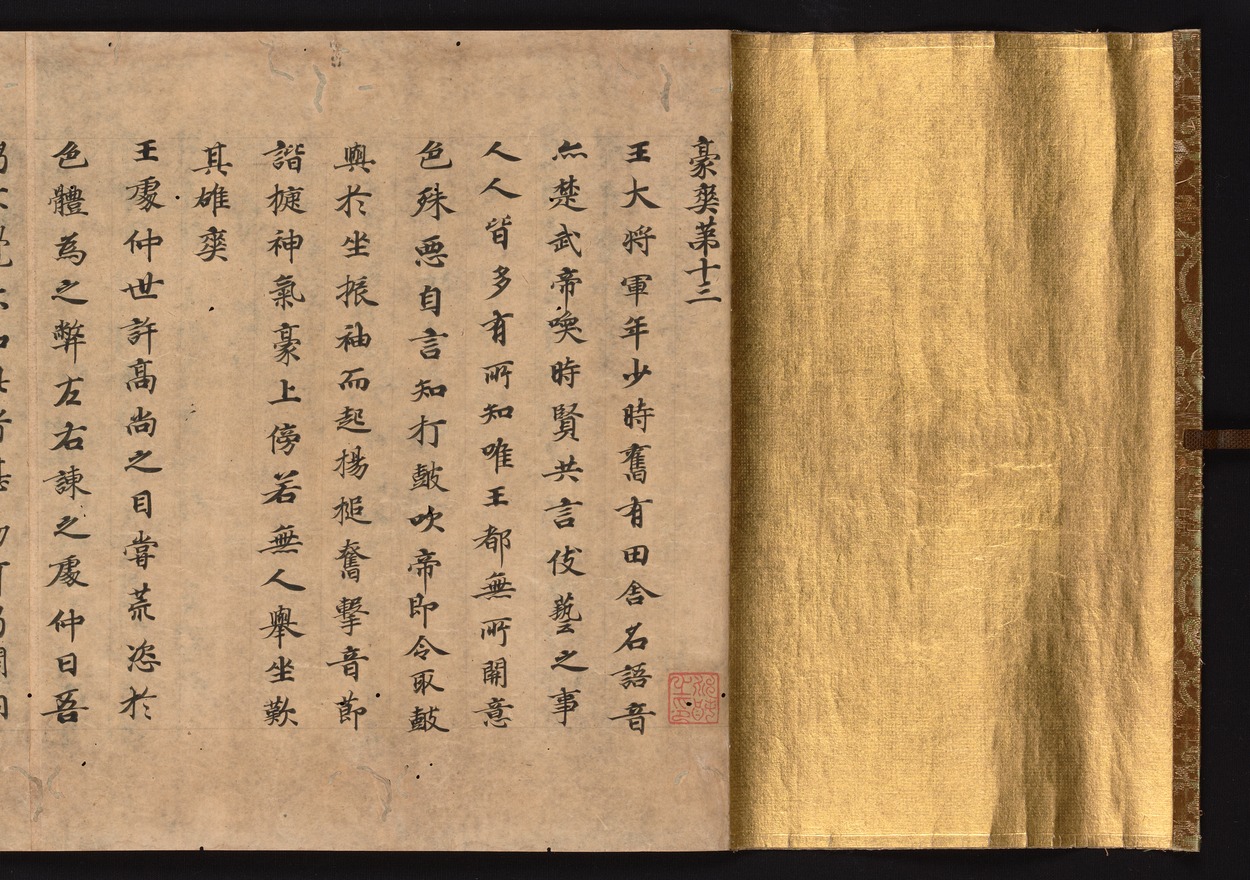 豪爽第十三
王大将軍年少時舊有田舎名語音
亦楚武帝喚時賢共言伎藝之事
人人皆多有所知唯王都無所開意
色殊惡自言知打鼓吹帝即令取鼓
與於坐振袖而起揚槌奮撃音節
諧捷神氣豪上傍若無人舉坐歎
其雄爽
王處仲世許髙尚之目嘗荒恣於
色體為之弊左右諫之處仲曰吾